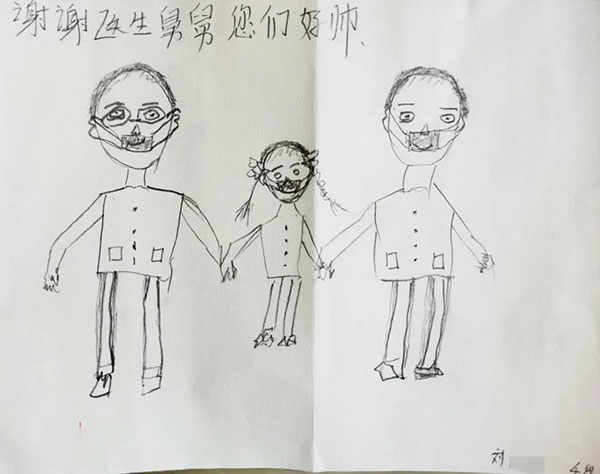 谢谢医生舅舅您们好帅、
刘